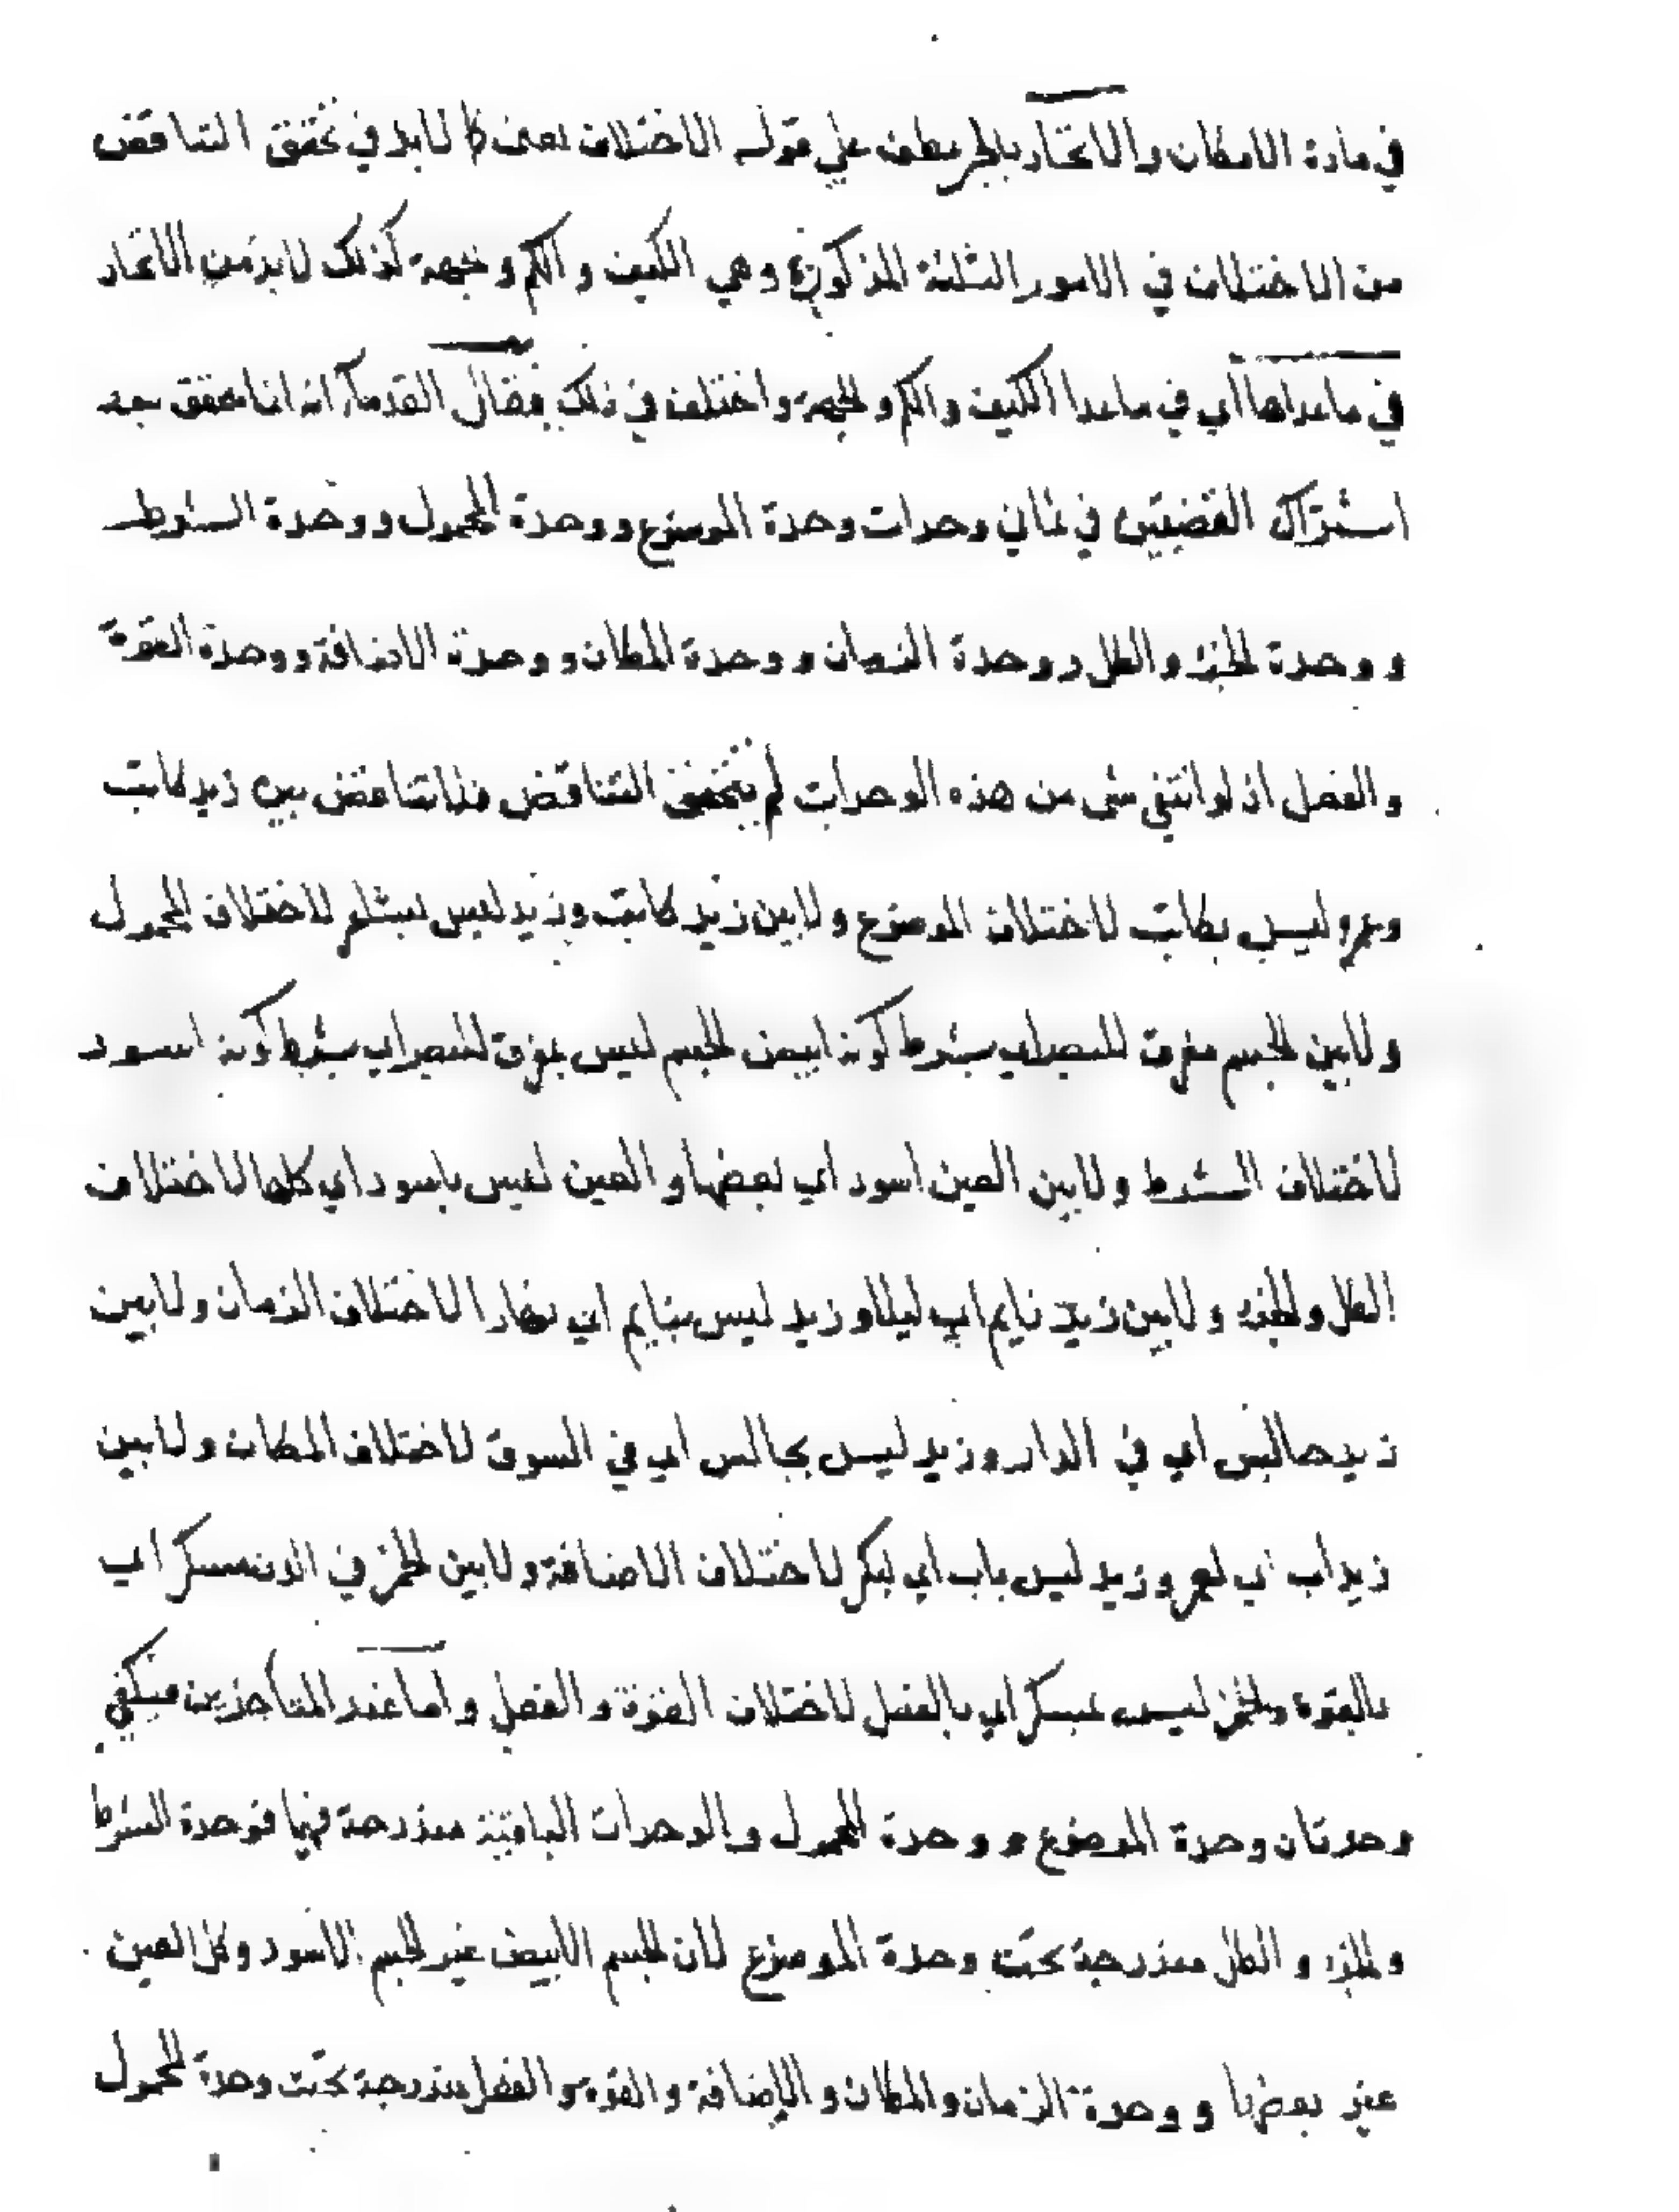 في مادة الامكان والاتحاد بالجر عطف علي قوله الاختلاف يعني كما لابد في تحقق التناقض
من الاختلاف في الامور الثلثة المذكورة وهي الكيف والكم وجهة كذلك لابد من الاتحاد
في ماعداها اي في ماعدا الكيف والكم والجهة واختلف في ذلك فقال القدماء انه انما تحقق بعد
اشتراك القضيتين في ثماني وحدات وحدة الموضوع ووحدة المحمول ووحدة الشرط
ووحدة الجزء والكل ووحدة الزمان ووحدة المكان ووحدة الاضافة ووحدة القوة
والفعل اذ لو انتفي شي من هذه الوحدات لم يتحقق التناقض فلا تناقض بين زيد كاتب
وعمرو ليس بكاتب لاختلاف الموضوع ولا بين زيد كاتب وزيد ليس بشاعر لاختلاف المحمول
ولا بين الجسم مفرق للبصر اي بشرط كونه ابيض الجسم ليس بمفرق للبصر اي بشرط كونه اسود
لاختلاف الشرط ولا بين العين اسود اي بعضها والعين ليس باسود اي كلها لاختلاف
الكل والجزء ولا بين زيد نايم اي ليلا وزيد ليس بنايم اي نهارا لاختلاف الزمان ولا بين
زيد جالس اي في الدار وزيد ليس بجالس اي في السوق لاختلاف المكان ولا بين
زيد اب اي لعمرو وزيد ليس باب اي لبكر لاختلاف الاضافة ولا بين الخمر في الدن مسكر اي
بالقوة والخمر ليس بمسكر اي بالفعل لاختلاف القوة والفعل واما عند المتاخرين فيكفي
وحدتان وحدة الموضوع ووحدة المحمول والوحدات الباقية مندرجة فيها فوحدة الشرط
والجزء والكل مندرجة تحت وحدة الموضوع لان الجسم الابيض غير الجسم الاسود وكل العين
غير بعضها ووحدة الزمان والمكان والإضافة والقوة والفعل مندرجة تحت وحدة المحمول